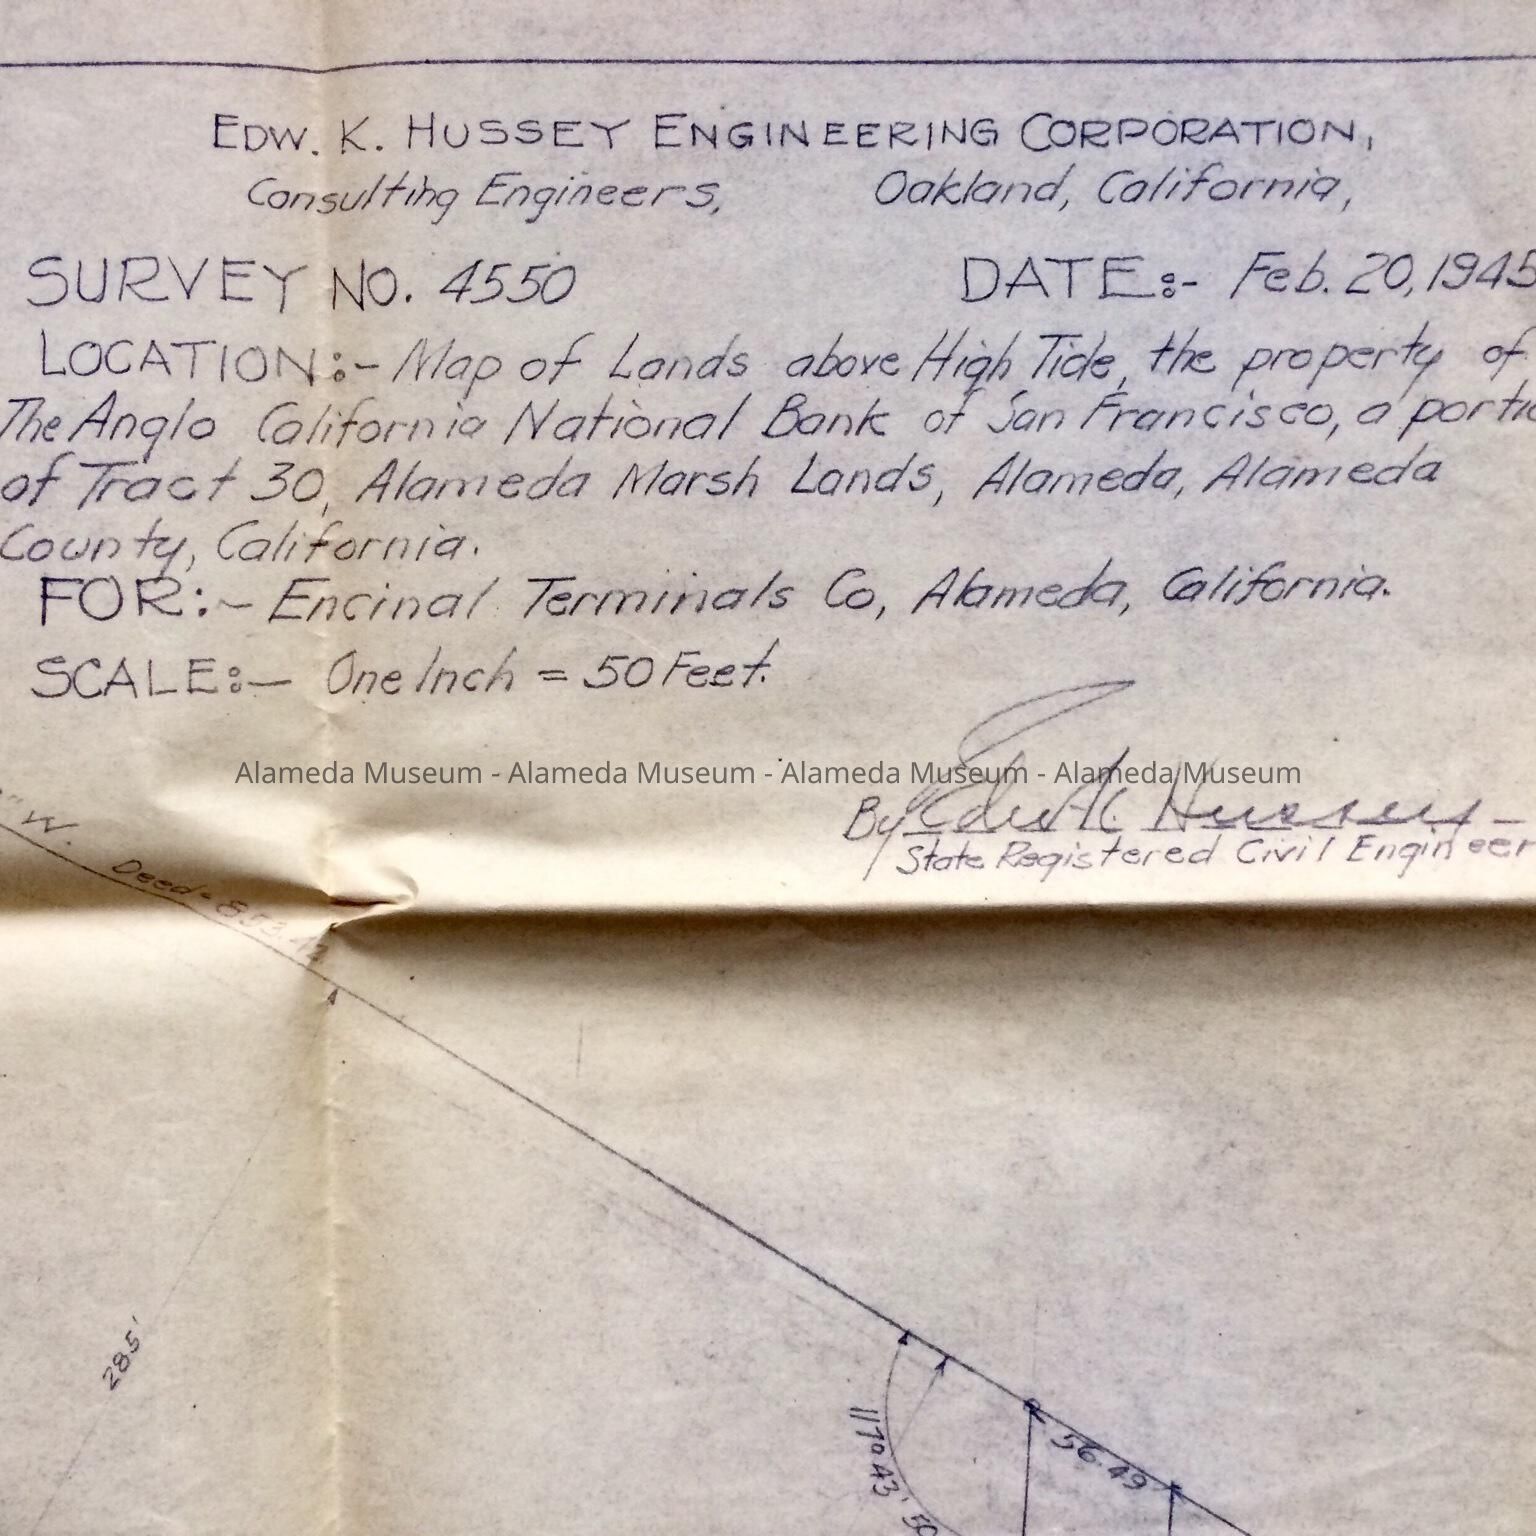 EDW. K. HUSSEY ENGINEERING CORPORATION,
Consulting Engineers, Oakland, California,
SURVEY NO. 4550 DATE:- Feb. 20, 1945
LOCATION:- Map of Lands above High Tide, the property of
The Anglo California National Bank of San Francisco, a portio
of Tract 30, Alameda Marsh Lands, Alameda, Alameda
County, California.
FOR:- Encinal Terminals Co, Alameda, California.
SCALE:- One Inch = 50 Feet.
Alameda Museum - Alameda Museum - Alameda Museum - Alameda Museum
By Edw. K. Hussey
State Registered Civil Engineer
" W.
Deed = 
285'
117° 43' 50
56.49